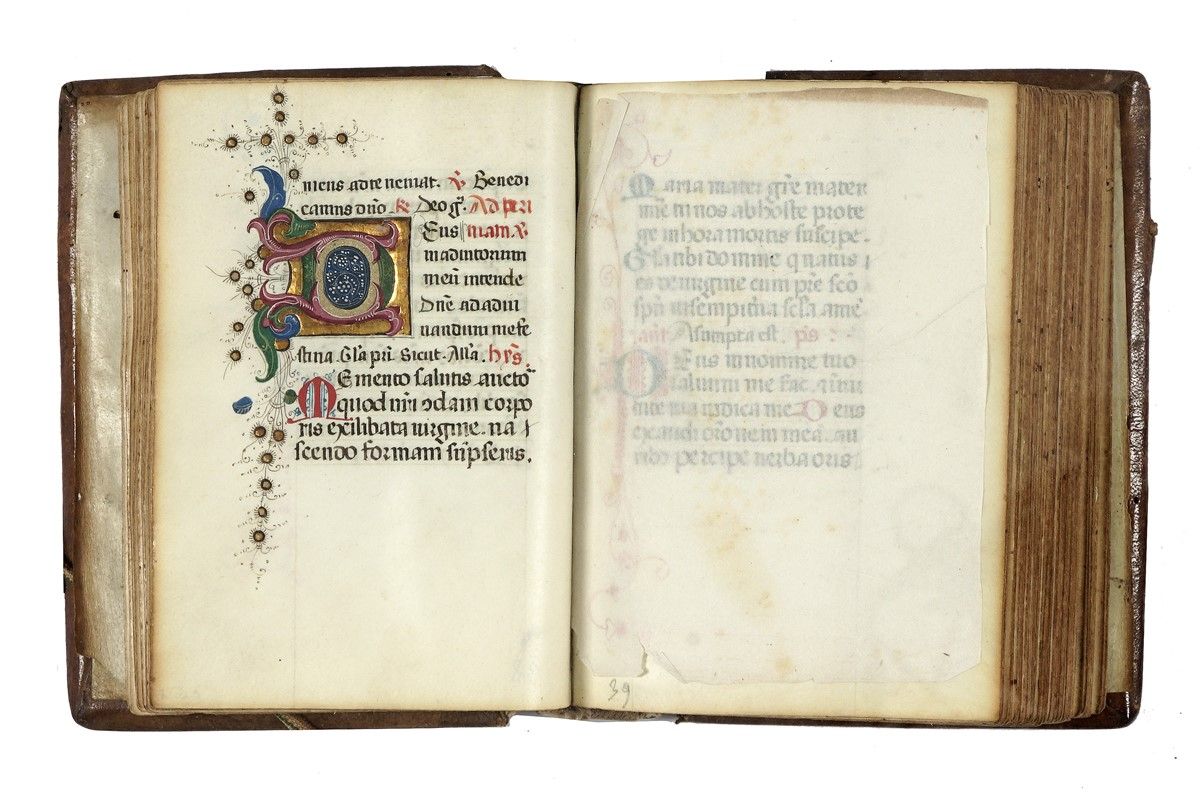 mens ad te ueniat. ℣. Benedi
camus dño ℟ Deo gr̃. Ad pri
Eus mam. ℣
in adiutorium
meũ intende
Dñe ad adiu
uandum me fe
stina. Gl̃a pr̃i. Sicut. All'a. hỹs.
Memento salutis aucto
quod nr̃i ↄdam corpo
ris ex illibata uirgine. na
scendo formam sũpseris.
Maria mater gr̃e mater
mie tu nos ab hoste prote
ge in hora mortis suscipe.
Gl̃a tibi domine qui natus
es de uirgine cum pr̃e sc̃o
sp̃u in sempit̃na sc̃la amẽ
añt Asumpta est. p̃s
Deus in nomine tuo
saluum me fac. & in uir
tute tua iudica me Deus
exaudi or̃onem meã. au
ribꝫ percipe uerba oris
39